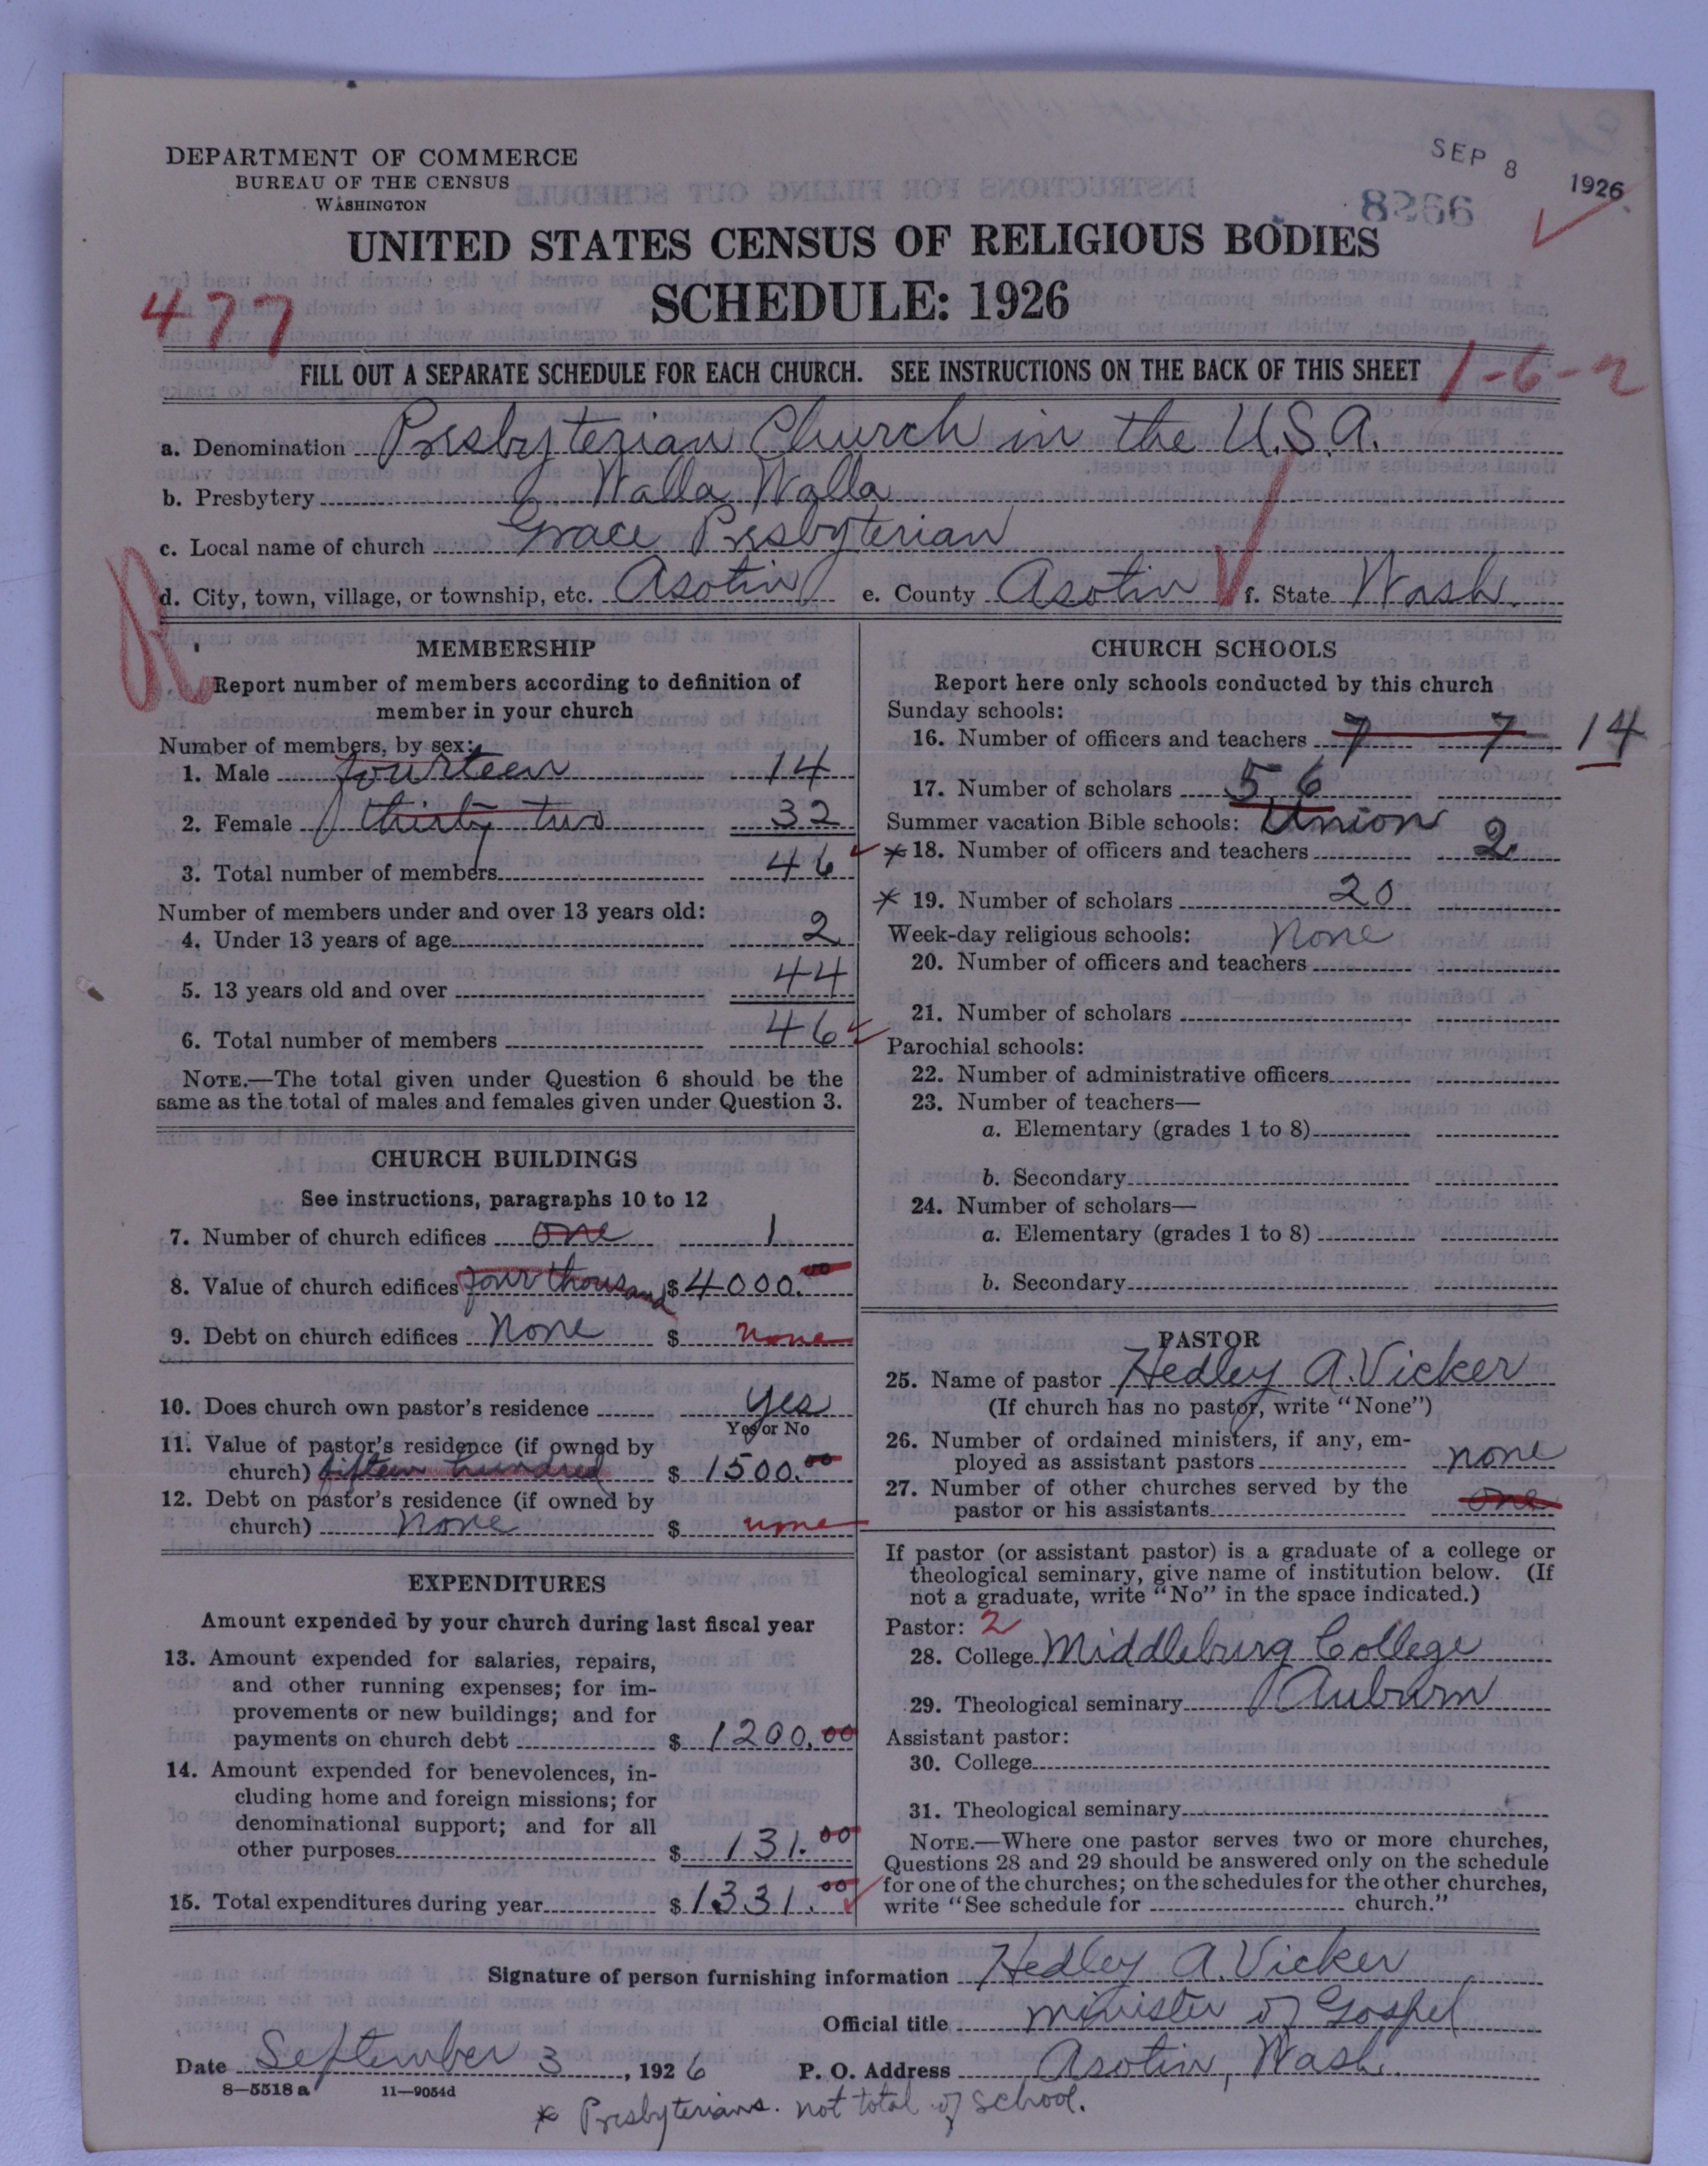 DEPARTMENT OF COMMERCE
BUREAU OF THE CENSUS
WASHINGTON
SEP 8 1926
8266
UNITED STATES CENSUS OF RELIGIOUS BODIES
SCHEDULE: 1926
477
FILL OUT A SEPARATE SCHEDULE FOR EACH CHURCH. SEE INSTRUCTIONS ON THE BACK OF THIS SHEET
1-6-2
a. Denomination Presbyterian Church in the U.S.A.
b. Presbytery Walla Walla
c. Local name of church Grace Presbyterian
d. City, town, village, or township, etc. Asotin e. County Asotin f. State Wash.
R
MEMBERSHIP
Report number of members according to definition of
member in your church
Number of members, by sex:
1. Male fourteen 14
2. Female thirty two 32
3. Total number of members 46
Number of members under and over 13 years old:
4. Under 13 years of age 2
5. 13 years old and over 44
6. Total number of members 46
NOTE.—The total given under Question 6 should be the
same as the total of males and females given under Question 3.
CHURCH BUILDINGS
See instructions, paragraphs 10 to 12
7. Number of church edifices one 1
8. Value of church edifices four thousand $4000.00
9. Debt on church edifices None $ none
10. Does church own pastor's residence yes
Yes or No
11. Value of pastor's residence (if owned by
church) fifteen hundred $ 1500.00
12. Debt on pastor's residence (if owned by
church) None $ none
EXPENDITURES
Amount expended by your church during last fiscal year
13. Amount expended for salaries, repairs,
and other running expenses; for im-
provements or new buildings; and for
payments on church debt $ 1200.00
14. Amount expended for benevolences, in-
cluding home and foreign missions; for
denominational support; and for all
other purposes $ 131.00
15. Total expenditures during year $1331.00
CHURCH SCHOOLS
Report here only schools conducted by this church
Sunday schools:
16. Number of officers and teachers 7 7 14
17. Number of scholars 56
Summer vacation Bible schools: Union
* 18. Number of officers and teachers 2
* 19. Number of scholars 20
Week-day religious schools: None
20. Number of officers and teachers
21. Number of scholars
Parochial schools:
22. Number of administrative officers
23. Number of teachers—
a. Elementary (grades 1 to 8)
b. Secondary
24. Number of scholars—
a. Elementary (grades 1 to 8)
b. Secondary
PASTOR
25. Name of pastor Hedley A. Vicker
(If church has no pastor, write "None")
26. Number of ordained ministers, if any, em-
ployed as assistant pastors none
27. Number of other churches served by the
pastor or his assistants one
If pastor (or assistant pastor) is a graduate of a college or
theological seminary, give name of institution below. (If
not a graduate, write "No" in the space indicated.)
Pastor: 2
28. College Middleburg College
29. Theological seminary Auburn
Assistant pastor:
30. College
31. Theological seminary
NOTE.—Where one pastor serves two or more churches,
Questions 28 and 29 should be answered only on the schedule
for one of the churches; on the schedules for the other churches,
write "See schedule for church."
Signature of person furnishing information Hedley A. Vicker
Official title Minister of Gospel
Date September 3, 1926 P. O. Address Asotin, Wash.
8—5518 a 11—9054d
* Presbyterians. not total of school.